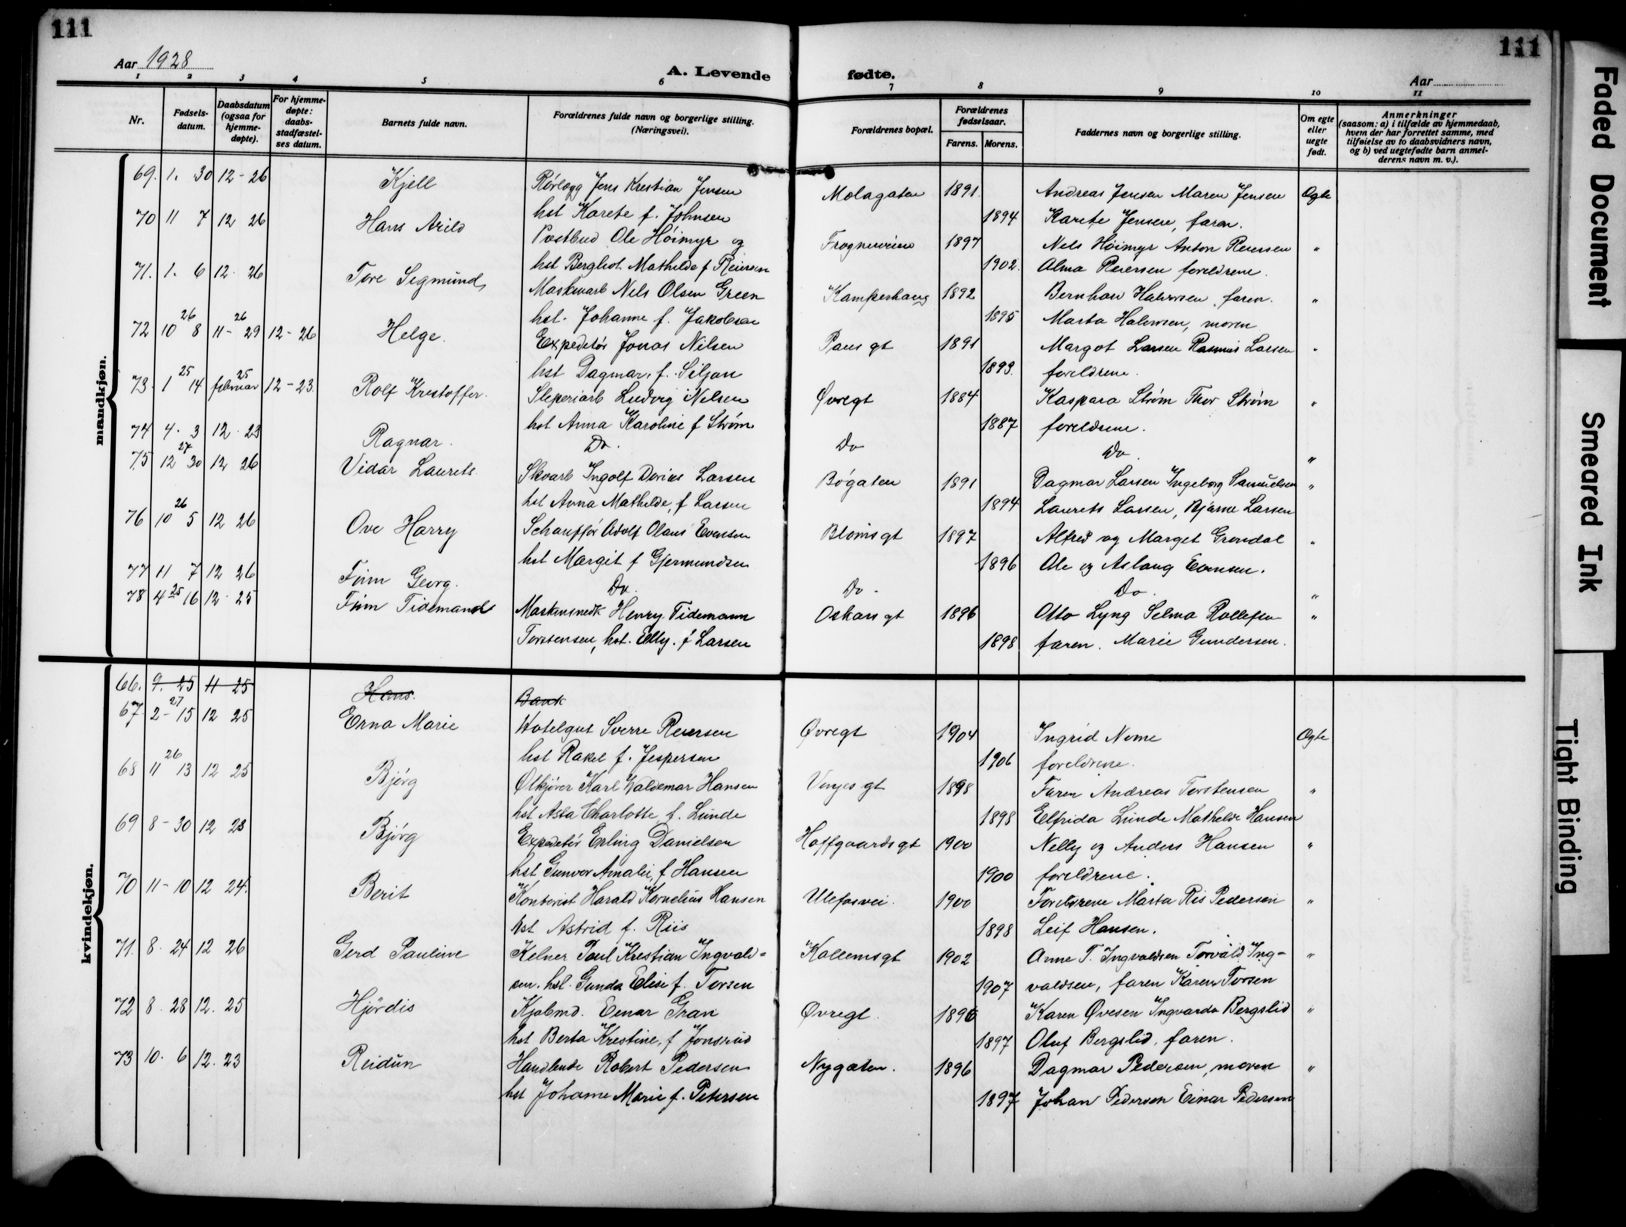 111
111
Aar 1928
A. Levende
fødte.
Aar
1 2 3 4 5 6 7 8 9 10 11
Nr.
Fødsels-
datum.
Daabsdatum
(ogsaa for
hjemme-
døpte).
For hjemme-
døpte:
daabs-
stadfæstel-
ses datum.
Barnets fulde navn.
Forældrenes fulde navn og borgerlige stilling.
(Næringsvei).
Forældrenes bopæl.
Forældrenes
fødselsaar.
Farens. Morens.
Faddernes navn og borgerlige stilling.
Om egte
eller
uegte
født.
Anmerkninger
(saasom: a) i tilfælde av hjemmedaab,
hvem der har forrettet samme, med
tilføielse av to daabsvidners navn,
og b) ved uegtefødte barn anmel-
derens navn m. v.).
mandkjøn.
69. 1. 30 12-26 Kjell Rørlegg Jens Kristian Jensen Molagaten 1891 Andreas Jensen Maren Jensen Egte
hst Karete f. Johnsen 1894 Karete Jensen, faren.
70 11 7 12 26 Hans Arild Postbud Ole Høimyr og 1897 Nels Høimyr Anton Reiersen "
hst Bergliot Mathilde f Reiersen 1902. Alma Reiersen foreldrene.
71. 1. 6 12. 26 Tore Sigmund Maskinarb Nels Olsen Green Kamperhaug 1892 Bernhard Halvorsen, faren. "
hst. Johanne f. Jakobsen 1895 Marta Halvorsen, moren
72 10 26 8 11- 26 29 12-26 Helge. Expeditør Jonas Nilsen Paus gt 1891 Margot Larsen Rasmus Larsen "
hst Dagmar, f. Siljan 1893. foreldrene.
73. 1 25 14 februar 25 12-23 Rolf Kristoffer. Sliperiarb Ludvig Nilsen Øvregt 1884 Kaspara Strøm Thor Strøm "
hst Anna Karoline f Strøm 1887 foreldrene.
74 4. 3 12. 23 Ragnar. Do. Do Do. "
75 12 27 30 12 26 Vidar Laurits Skoarb Ingolf Larsen Bøgaten 1891 Dagmar Larsen Ingeborg Samuelsen "
hst Anna Mathilde, f Larsen 1894 Laurits Larsen, Bjarne Larsen
76 10 26 5 12 26 Ove Harry Schauffør Adolf Olaus Evensen Blomsgt 1897 Alfred og Marget Grendal "
hst Margit f Gjermundsen 1896 Ole og Aslaug Evensen.
77 11 7 12 26 Finn Georg. Do. Do. Do. "
78 4 25 16 12. 25 Finn Tidemand Maskinsmed Henry Tidemann Oskars gt 1896 Otto Lyng Selma Rollefsen "
Torstensen, hst. Elly. f Larsen 1898 faren. Marie Gundersen.
kvindekjøn.
66. 9. 25 11 25 Hans.
67 2- 27 15 12 25 Erna Marie Hotelgut Sverre Reiersen Øvregt 1904 Ingrid Nome Egte
hst Rakel f. Jespersen 1906 foreldrene.
68 11 26 13 12 25 Bjørg Ølkjører Karl Valdemar Hansen Vinjes gt 1898 Faren Andreas Torstensen "
hst Asta Charlotte f. Lunde 1898 Elfrida Lunde Mathilde Hansen
69 8-30 12 23 Bjørg Expeditør Erling Danielsen Hoffgaardsgt 1900 Nelly og Anders Hansen "
hst Gunvor Amalie, f Hansen 1900 foreldrene.
70 11-10 12 24. Berit Kontorist Harald Kornelius Hansen Ulefosvei. 1900 Foreldrene Marta Riis Pedersen "
hst Astrid f. Riis 1898 Leif Hansen.
71. 8. 24 12 26 Gerd Pauline Kelner Paul Kristian Ingvald= Kollemsgt 1902 Anne T. Ingvaldsen Torvald Ing= "
sen. hst. Gunda Elise f. Torsen 1907 valdsen, faren Karen Torsen
72 8. 28 12. 25 Hjørdis Kjøbmd. Einar Gran Øvregt. 1896 Karen Øvesen Ingvarda Bergslid "
hst Berta Kristine, f Jonsrud 1897 Oluf Bergslid, faren.
73 10. 6 12. 23 Reidun Handlende Robert Pedersen Nygaten. 1896 Dagmar Pedersen, moren "
hst Johanne Marie f. Petersen 1897 Johan Pedersen Einar Pedersen
Faded Document
Smeared Ink
Tight Binding